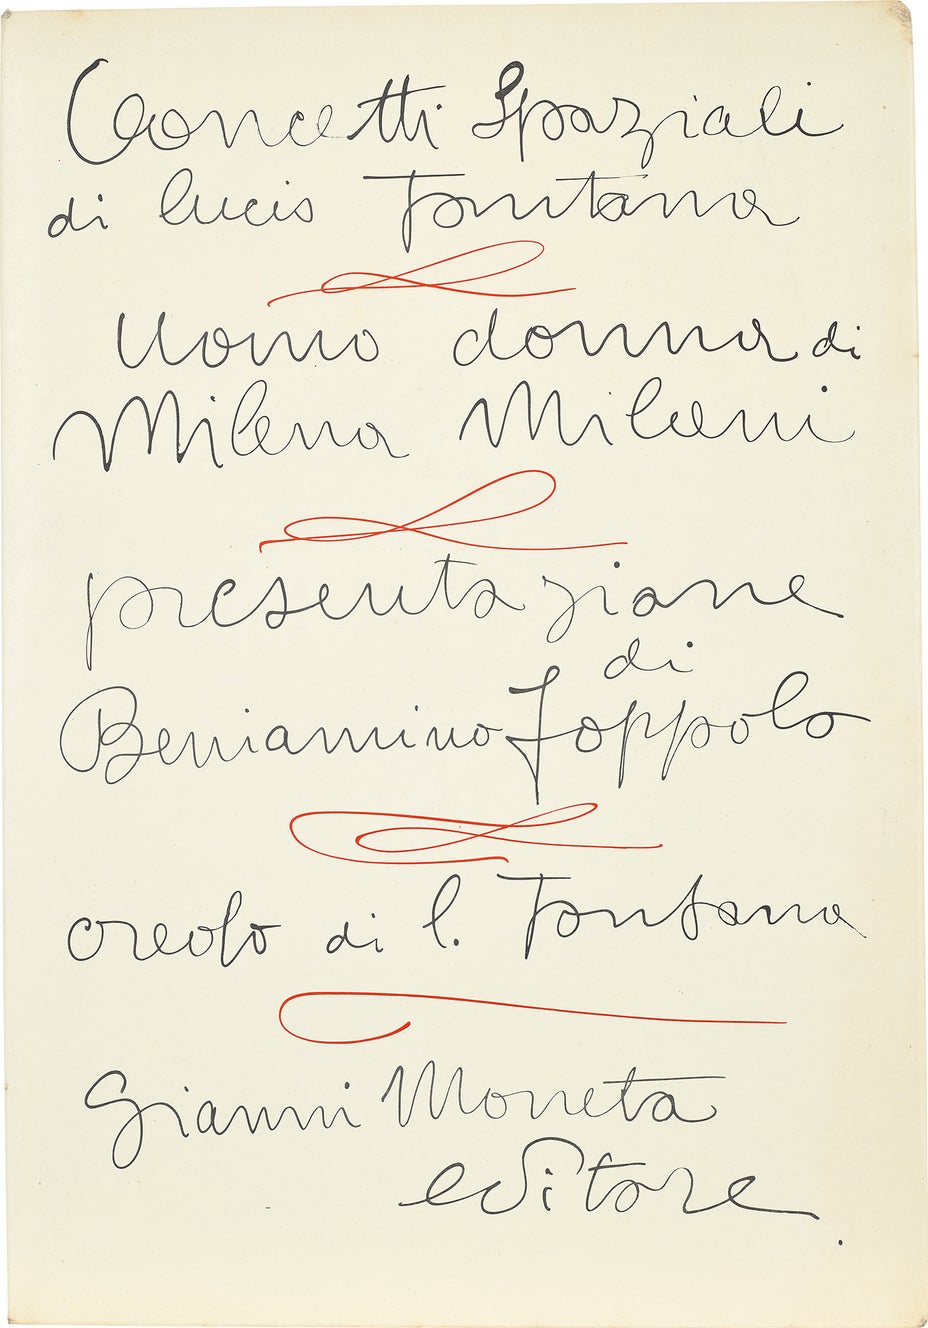 Concetti Spaziali
di Lucio Fontana
Uomo donna di
Milena Milani
presentazione
di
Beniamino Joppolo
oreofo di l. Fontana
Gianni Moneta
editore